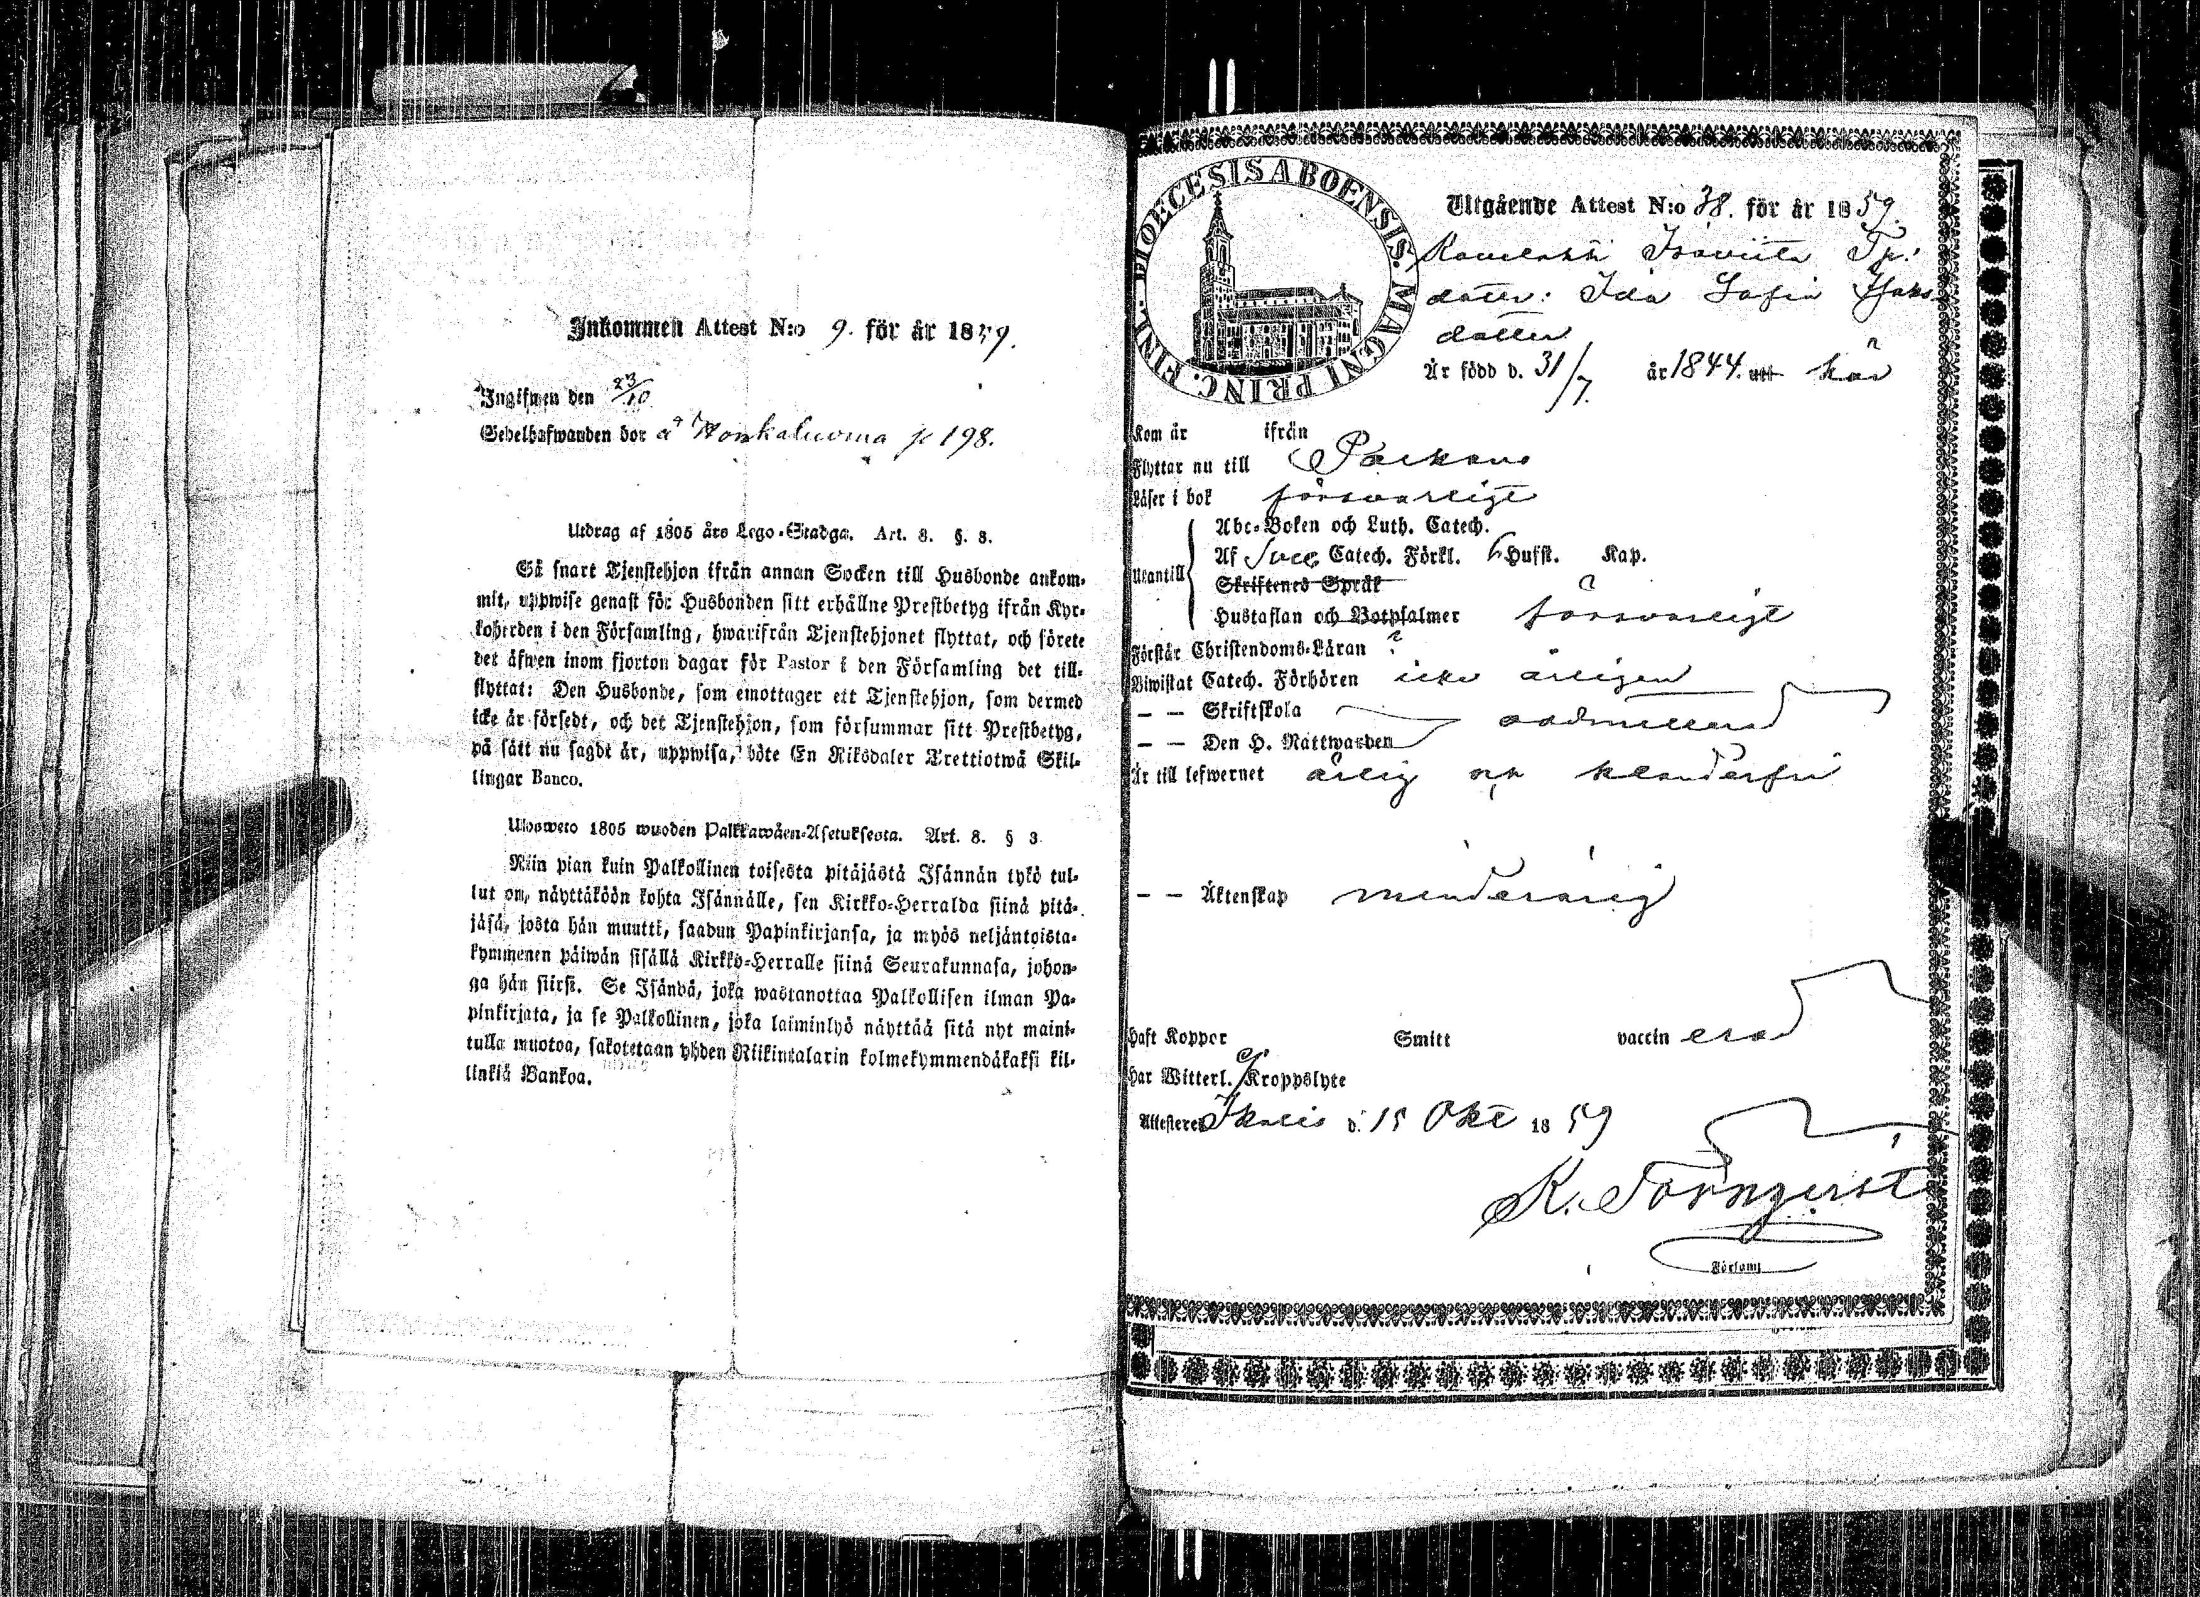 Inkommen Attest N:o 9. för år 1859.
Ingifwen den 23/10
Sedelhafwanden bor å Honkaluoma p 198.
Utdrag af 1805 års Lego-Stadga. Art. 8. §. 8.
Så snart Tjenstehjon ifrån annan Socken till Husbonde ankom-
mit, uppwise genast för Husbonden sitt erhållne Prestbetyg ifrån Kyr-
koherden i den Församling, hwarifrån Tjenstehjonet flyttat, och förete
det äfwen inom fjorton dagar för Pastor i den Församling det till-
flyttat: Den Husbonde, som emottager ett Tjenstehjon, som dermed
icke är försedt, och det Tjenstehjon, som försummar sitt Prestbetyg,
på sätt nu sagdt är, uppwisa, böte En Riksdaler Trettiotwå Skil-
lingar Banco.
Ulosweto 1805 wuoden Palkkawäen-Asetuksesta. Art. 8. § 3
Niin pian kuin Palkollinen toisesta pitäjästä Isännän tykö tul-
lut on, näyttäköön kohta Isännälle, sen Kirkko-Herralda siinä pitä-
jäsä, josta hän muutti, saadun Papinkirjansa, ja myös neljäntoista-
kymmenen päiwän sisällä Kirkko-Herralle siinä Seurakunnasa, johon-
ga hän siirsi. Se Isändä, joka wastanottaa Palkollisen ilman Pa-
pinkirjata, ja se Palkollinen, joka laiminlyö näyttää sitä nyt maini-
tulla muotoa, sakotetaan yhden Riikintalarin kolmekymmendäkaksi kil-
linkiä Bankoa.
DIOECESIS ABOENSIS. MAGNI PRINC. FINL.
Utgående Attest N:o 38. för år 1859.
dotter: Ida Sofia
dotter
Är född d. 31/7. år 1844. här
Kom år ifrån
Flyttar nu till Parkano
Läser i bok försvarligt
Utantill
Abc-Boken och Luth. Catech.
Af Catech. Förkl. Hufst. Kap.
Skriftenes Språk
Hustaflan och Botpsalmer försvarligt
Förstår Christendoms-Läran
Biwistat Catech. Förhören icke årligen
— — Skriftskola
— — Den H. Nattwarden oadmitterad
Är till lefwernet ärlig och klanderfri
— — Äktenskap minderårig
Haft Koppor Smitt vaccin erad
Har Witterl. ej Kroppslyte
Attesteres Ikalis d. 15 Okt 1859
K. Törnqvist
Församl